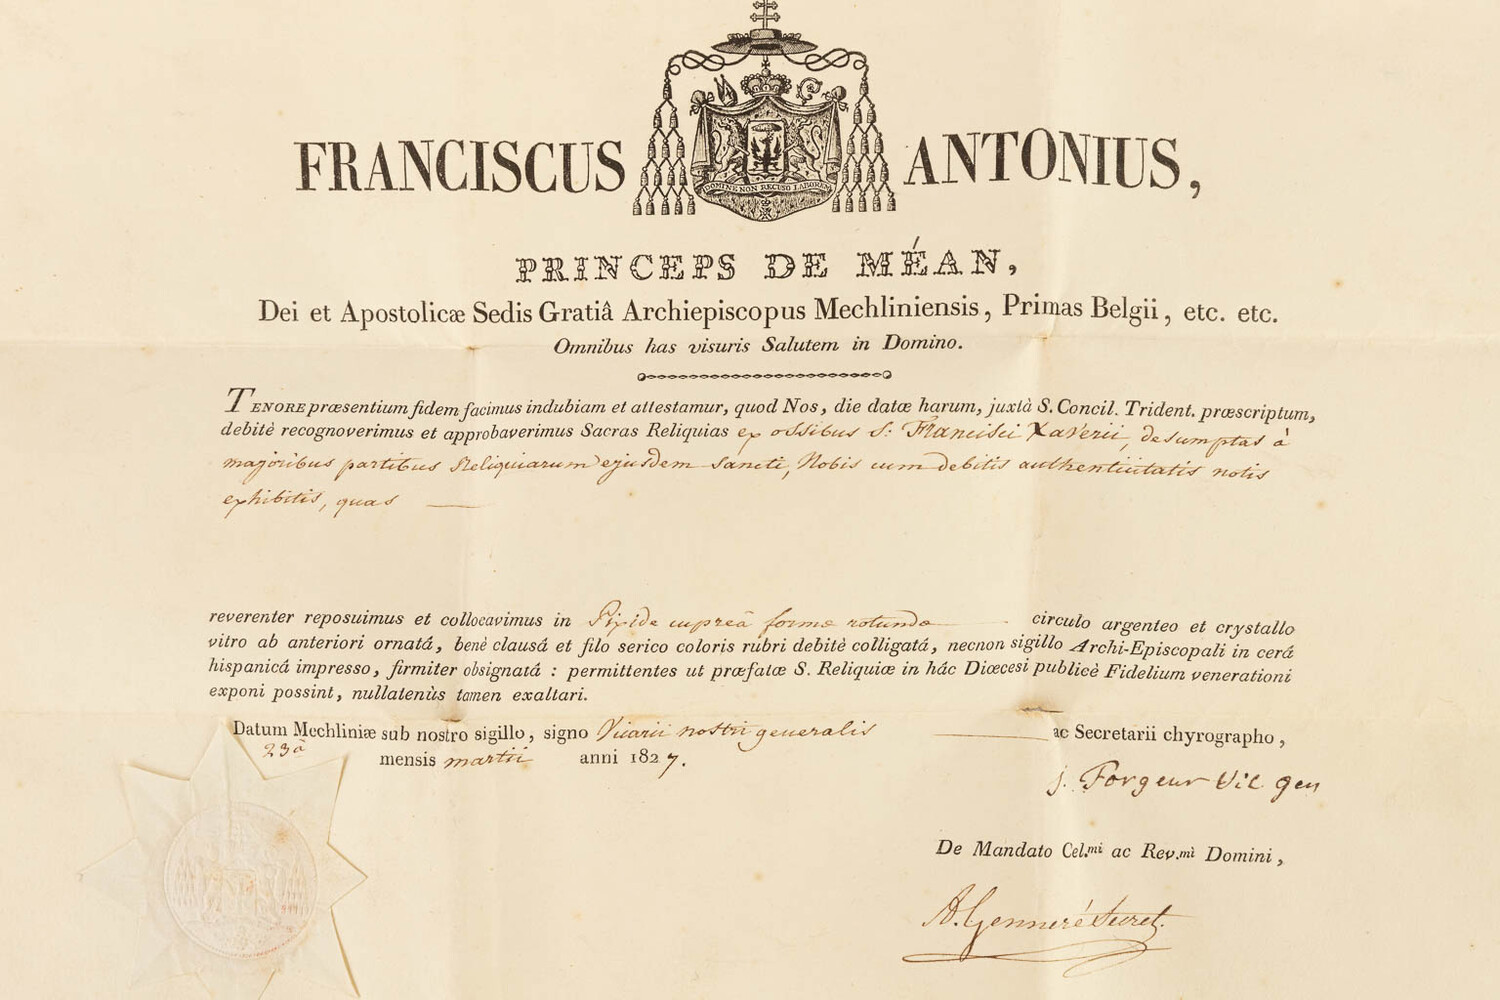 FRANCISCUS ANTONIUS,
DOMINE NON RECUSO LABOREM
PRINCEPS DE MÉAN,
Dei et Apostolicæ Sedis Gratiâ Archiepiscopus Mechliniensis, Primas Belgii, etc. etc.
Omnibus has visuris Salutem in Domino.
TENORE præsentium fidem facimus indubiam et attestamur, quod Nos, die datæ harum, juxtà S. Concil. Trident. præscriptum,
debitè recognoverimus et approbaverimus Sacras Reliquias ex ossibus S: Francisci Xaverii, desumptas à
majoribus partibus Reliquiarum ejusdem sancti, Nobis cum debitis authenticitatis notis
exhibitis, quas
reverenter reposuimus et collocavimus in Pixide cupreâ formæ rotundæ circulo argenteo et crystallo
vitro ab anteriori ornatá, benè clausá et filo serico coloris rubri debitè colligatá, necnon sigillo Archi-Episcopali in cerá
hispanicá impresso, firmiter obsignatá : permittentes ut præfatæ S. Reliquiæ in hác Diœcesi publicè Fidelium venerationi
exponi possint, nullatenùs tamen exaltari.
Datum Mechliniæ sub nostro sigillo, signo Vicarii nostri generalis ac Secretarii chyrographo,
23â mensis martii anni 1827.
J. Forgeur Vic gen
De Mandato Cel.mi ac Rev.mi Domini,
A. Genneré Secret.